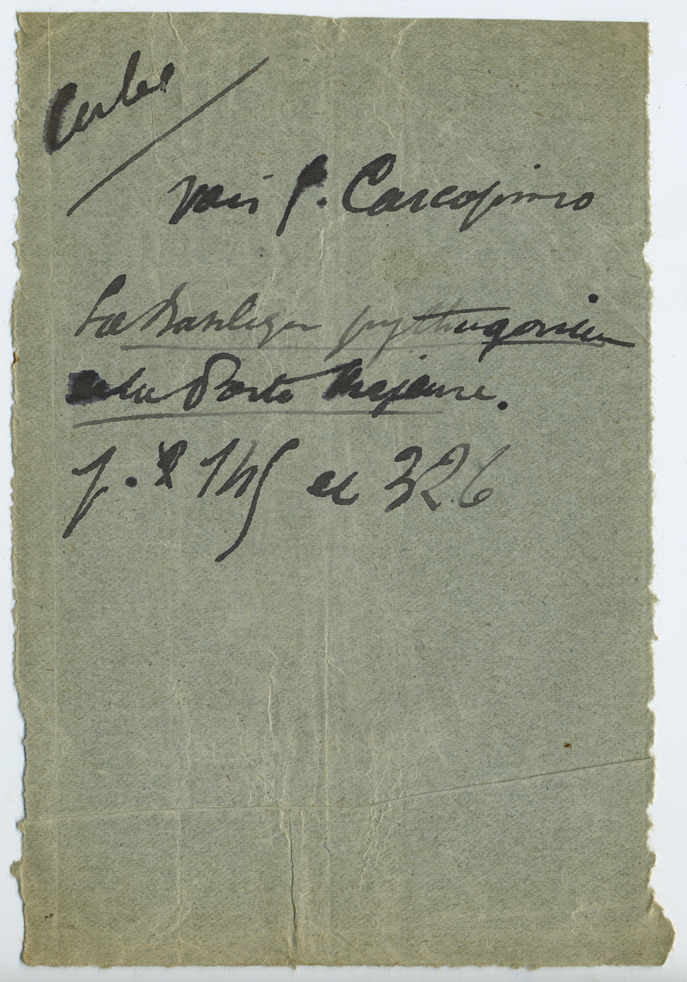 voir J. Carcopino
La Basilique pythagoricienne
de la Porte Majeure.
p. 149 et 326